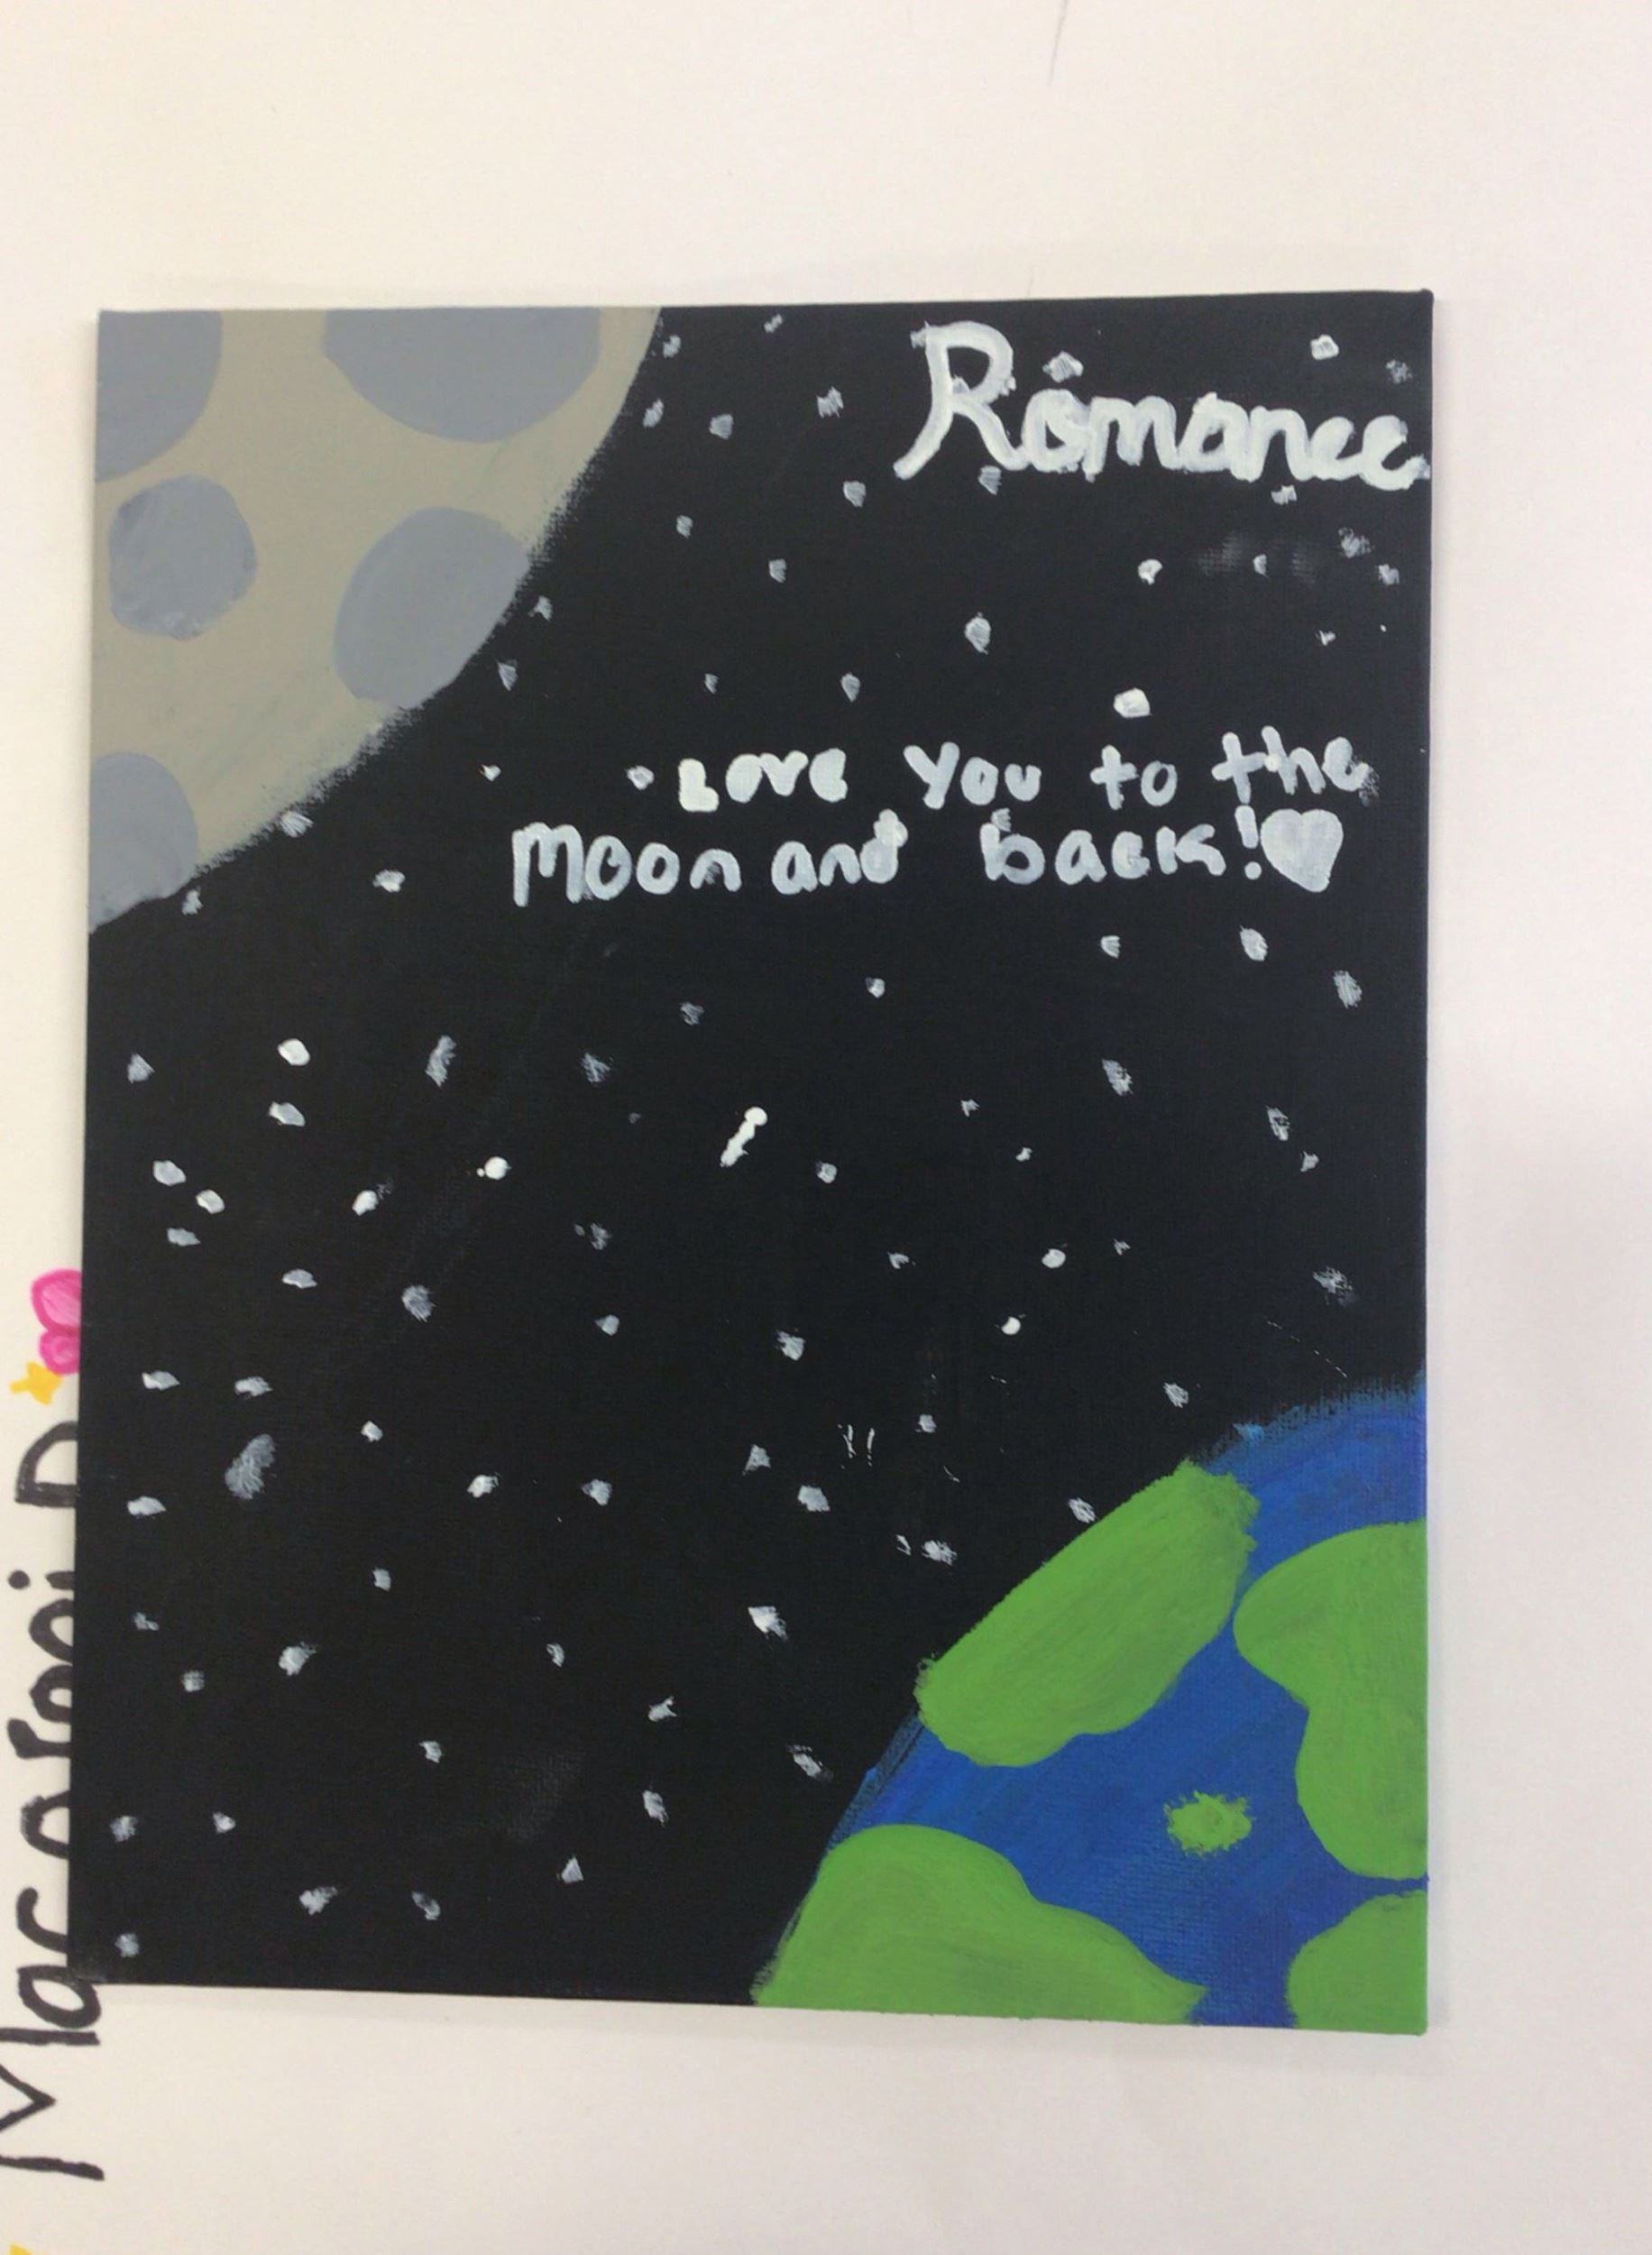 Romance
Love you to the
Moon and back!